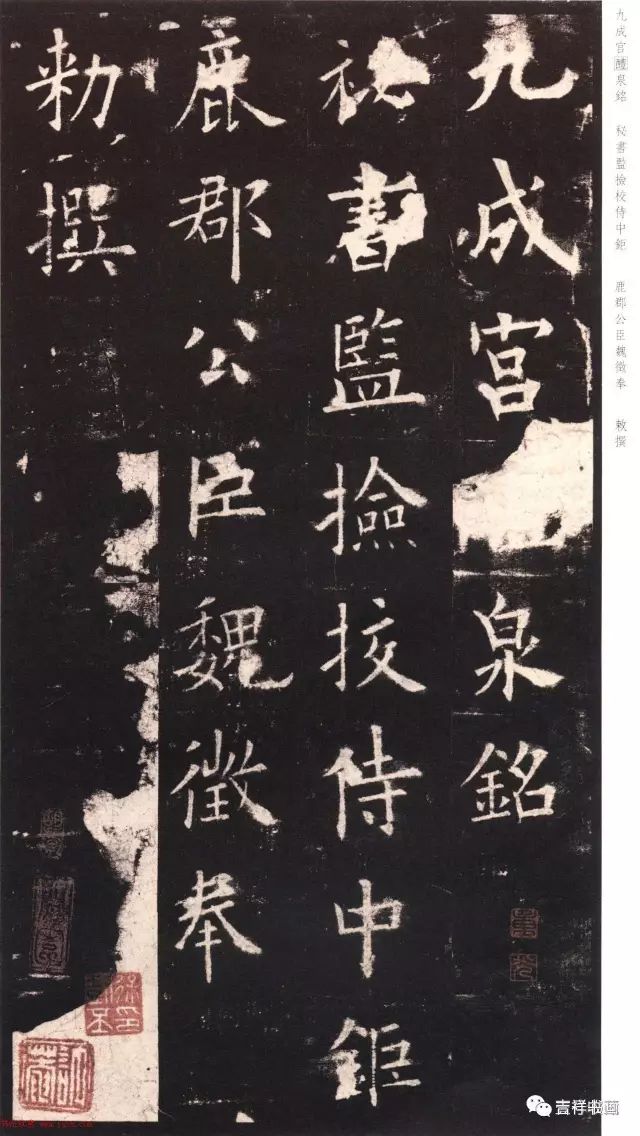 九成宫醴泉銘 秘書監撿校侍中鉅 鹿郡公臣魏徵奉 敕撰
九成宮 泉銘
祕書監撿挍侍中鉅
鹿郡公臣魏徵奉
勑撰
吉祥书画